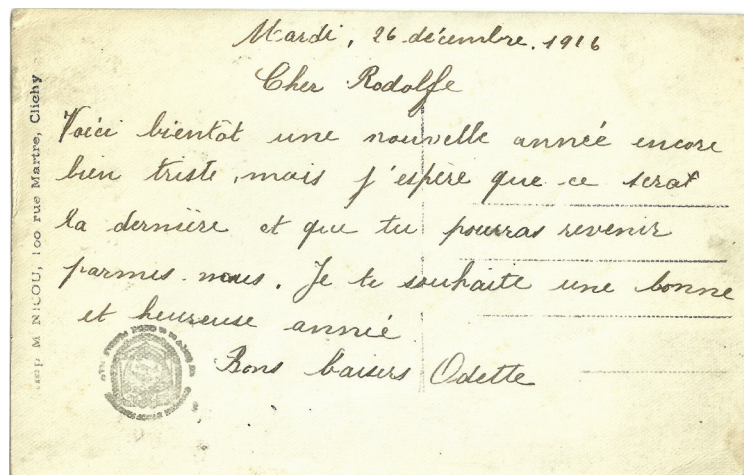 Mardi, 26 décembre, 1916
Cher Rodolfe
Voici bientôt une nouvelle année encore
bien triste, mais j'espère que ce serat
la dernière et que tu pourras revenir
parmis nous. Je te souhaite une bonne
et heureuse année
Bons baisers Odette
Imp M NICOU, 100 rue Martre, Clichy